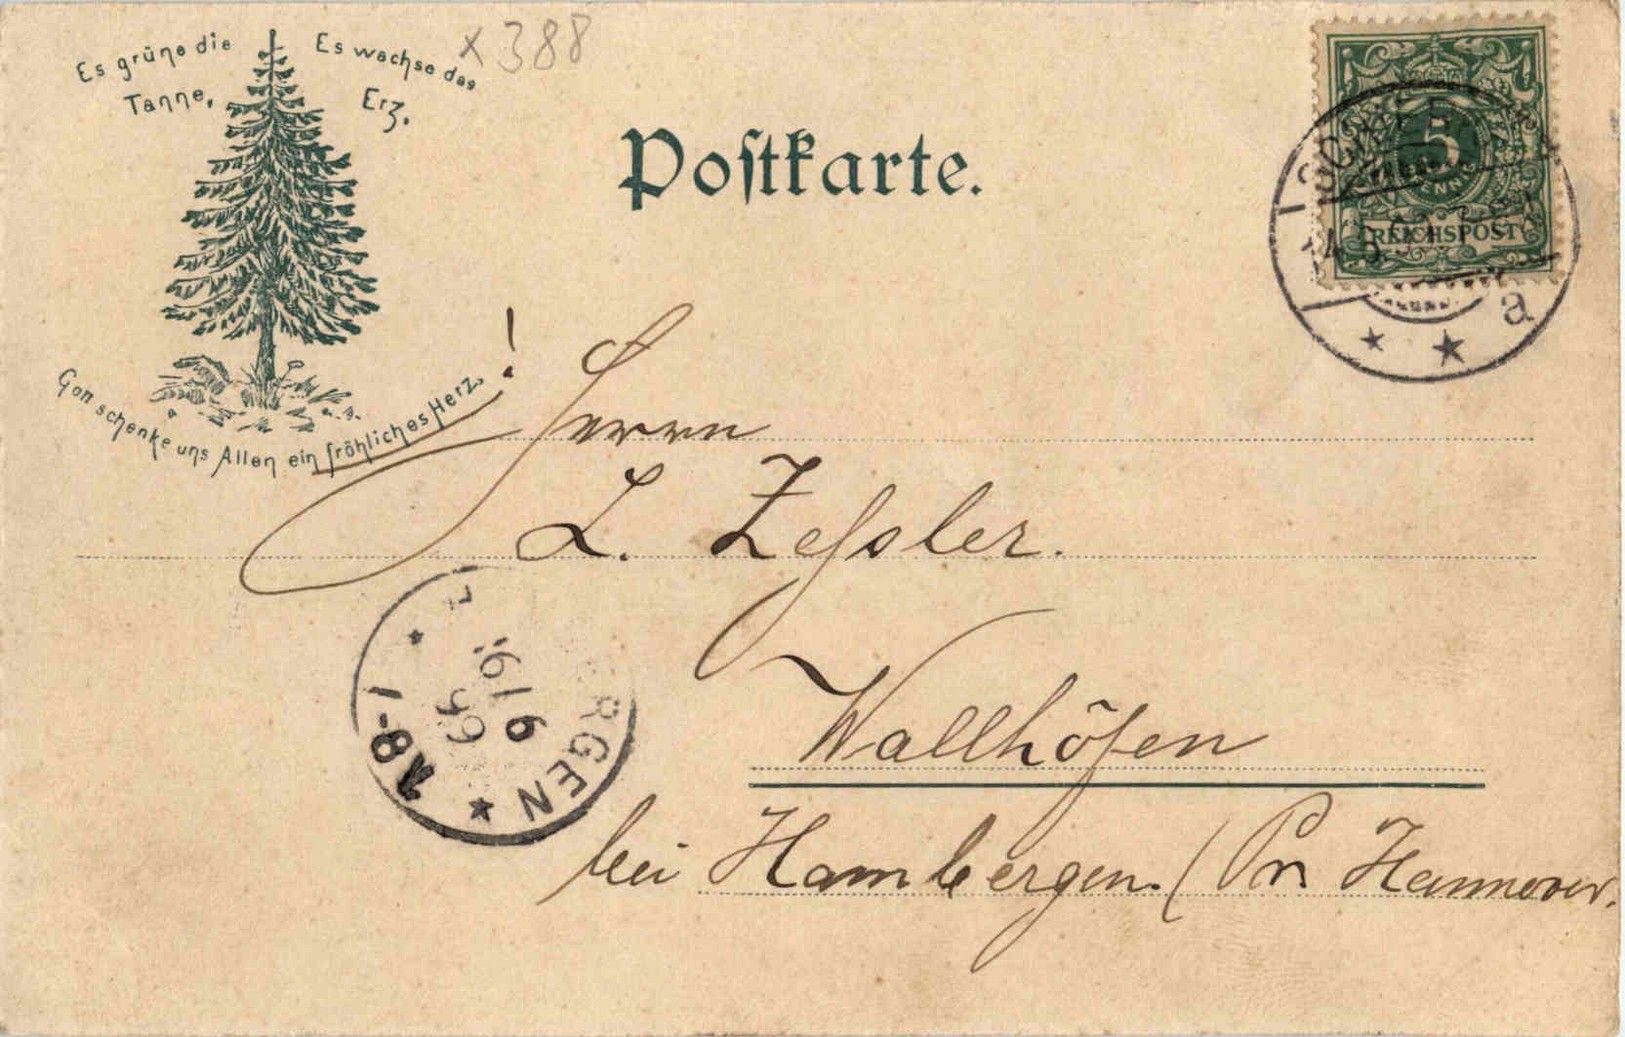 Es grüne die
Tanne,
Es wachse das
Erz.
Gott schenke uns Allen ein fröhliches Herz.!
x 388
Postkarte.
5
REICHSPOST
a
Herrn
L. Zessler.
Wallhöfen
bei Hambergen. (Pr. Hannover.
RGEN
9/6
99
7-8